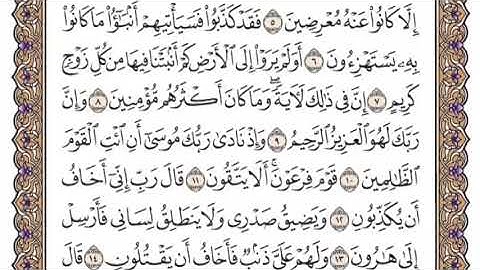 إِلَّا كَانُوا۟ عَنْهُ مُعْرِضِينَ ٥ فَقَدْ كَذَّبُوا۟ فَسَيَأْتِيهِمْ أَنۢبَـٰٓؤُا۟ مَا كَانُوا۟
بِهِۦ يَسْتَهْزِءُونَ ٦ أَوَلَمْ يَرَوْا۟ إِلَى ٱلْأَرْضِ كَمْ أَنۢبَتْنَا فِيهَا مِن كُلِّ زَوْجٍ
كَرِيمٍ ٧ إِنَّ فِى ذَٰلِكَ لَـَٔايَةً ۖ وَمَا كَانَ أَكْثَرُهُم مُّؤْمِنِينَ ٨ وَإِنَّ
رَبَّكَ لَهُوَ ٱلْعَزِيزُ ٱلرَّحِيمُ ٩ وَإِذْ نَادَىٰ رَبُّكَ مُوسَىٰٓ أَنِ ٱئْتِ ٱلْقَوْمَ
ٱلظَّـٰلِمِينَ ١٠ قَوْمَ فِرْعَوْنَ ۚ أَلَا يَتَّقُونَ ١١ قَالَ رَبِّ إِنِّىٓ أَخَافُ
أَن يُكَذِّبُونِ ١٢ وَيَضِيقُ صَدْرِى وَلَا يَنطَلِقُ لِسَانِى فَأَرْسِلْ
إِلَىٰ هَـٰرُونَ ١٣ وَلَهُمْ عَلَىَّ ذَنۢبٌ فَأَخَافُ أَن يَقْتُلُونِ ١٤ قَالَ